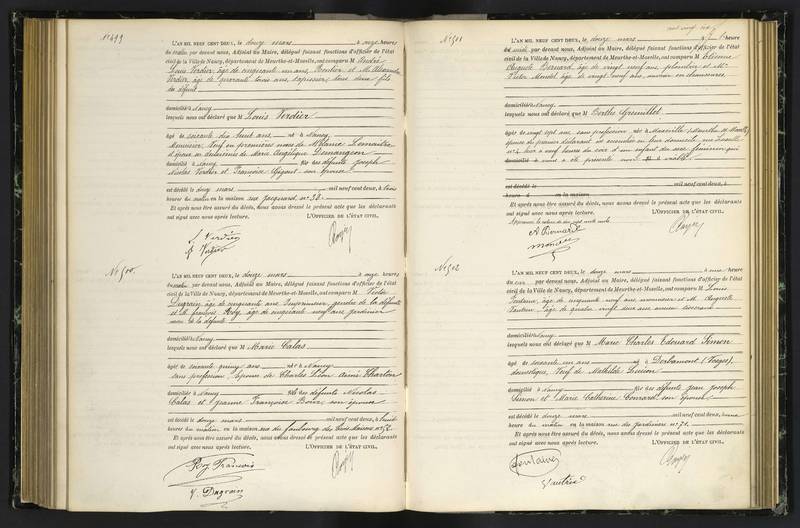 N° 499
L'AN MIL NEUF CENT DEUX, le douze mars à onze heures
du matin par devant nous, Adjoint au Maire, délégué faisant fonctions d'officier de l'état
civil de la Ville de Nancy, département de Meurthe-et-Moselle, ont comparu M André
Louis Verdier, âgé de cinquante un ans, et M. Alexandre
Verdier, âgé de quarante trois ans, tapissier, tous deux fils
du défunt
domicilié à Nancy
lesquels nous ont déclaré que M Louis Verdier
âgé de soixante dix huit ans né à Nancy
menuisier, Veuf en premières noces de Mélanie Lemaitre
époux en deuxièmes de Marie Angélique Demangeon
domicilié à Nancy fils des défunts Joseph
Nicolas Verdier et Françoise Gigout son épouse
est décédé le douze mars mil neuf cent deux, à trois
heures du matin en la maison rue Jacquard n° 38
Et après nous être assuré du décès, nous avons dressé le présent acte que les déclarants
ont signé avec nous après lecture. L'OFFICIER DE L'ÉTAT CIVIL,
Verdier
Verdier
N° 500
L'AN MIL NEUF CENT DEUX, le douze mars à onze heures
du matin par devant nous, Adjoint au Maire, délégué faisant fonctions d'officier de l'état
civil de la Ville de Nancy, département de Meurthe-et-Moselle, ont comparu M Victor
Dugrain âgé de cinquante ans Imprimeur, gendre de la défunte
et M. François Roy, âgé de cinquante neuf ans jardinier
de la défunte
domiciliés à Nancy
lesquels nous ont déclaré que M Marie Calas
âgée de soixante quinze ans née à Nancy
sans profession, épouse de Charles Léon Aimé Charton
domiciliée à Nancy fille des défunts Nicolas
Calas et Jeanne Françoise son épouse
est décédée le douze mars mil neuf cent deux, à
heures du matin en la maison rue du faubourg des trois maisons n°
Et après nous être assuré du décès, nous avons dressé le présent acte que les déclarants
ont signé avec nous après lecture. L'OFFICIER DE L'ÉTAT CIVIL,
Roy François
V. Dugrain
N° 501
L'AN MIL NEUF CENT DEUX, le douze mars à heure
du par devant nous, Adjoint au Maire, délégué faisant fonctions d'officier de l'état
civil de la Ville de Nancy, département de Meurthe-et-Moselle, ont comparu M Etienne
Auguste Bernard âgé de vingt neuf ans, plombier et M.
Victor Mondel âgé de vingt neuf ans, ouvrier en chaussures
domiciliés à Nancy
lesquels nous ont déclaré que M Berthe Grémillet
âgée de vingt sept ans sans profession née à Maxéville (Meurthe & Moselle)
épouse du premier déclarant est accouchée en leur domicile rue
n° 4 hier à neuf heures du soir d'un enfant du sexe féminin qui
domicilié à nous a été présenté non viable
est décédé le mil neuf cent deux, à
heures d en la maison
Et après nous être assuré du décès, nous avons dressé le présent acte que les déclarants
ont signé avec nous après lecture. L'OFFICIER DE L'ÉTAT CIVIL,
A Bernard
N° 502
L'AN MIL NEUF CENT DEUX, le douze mars à une heure
du soir par devant nous, Adjoint au Maire, délégué faisant fonctions d'officier de l'état
civil de la Ville de Nancy, département de Meurthe-et-Moselle, ont comparu M Louis
Fontaine, âgé de cinquante neuf ans menuisier et M. Auguste
Vautrin âgé de quatre vingt deux ans ancien tisserand
domiciliés à Nancy
lesquels nous ont déclaré que M Marie Charles Edouard Simon
âgé de soixante un ans né à Derbamont (Vosges),
domestique, Veuf de Mathilde
domicilié à Nancy fils des défunts Jean Joseph
Simon et Marie Catherine Conrard son épouse
est décédé le douze mars mil neuf cent deux, à une
heure du matin en la maison rue des Jardiniers n° 70
Et après nous être assuré du décès, nous avons dressé le présent acte que les déclarants
ont signé avec nous après lecture. L'OFFICIER DE L'ÉTAT CIVIL,
fontaine
Vautrin